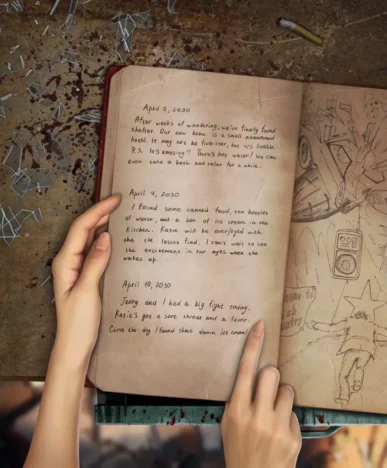 April 2, 2030
After weeks of wandering, we've finally found
shelter. Our new home is a small abandoned
hostel. It may not be five-star, but it's livable.
P.S. It's amazing!! There's hot water! We can
even take a bath and relax for a while.
April 4, 2030
I found some canned food, ten bottles
of water, and a box of ice cream in the
kitchen. Katie will be overjoyed with
the ice cream find, I can't wait to see
the excitement in her eyes when she
wakes up.
April 10, 2030
Jerry and I had a big fight today.
Katie's got a sore throat and a fever.
Curse the day I found those damn ice cream!